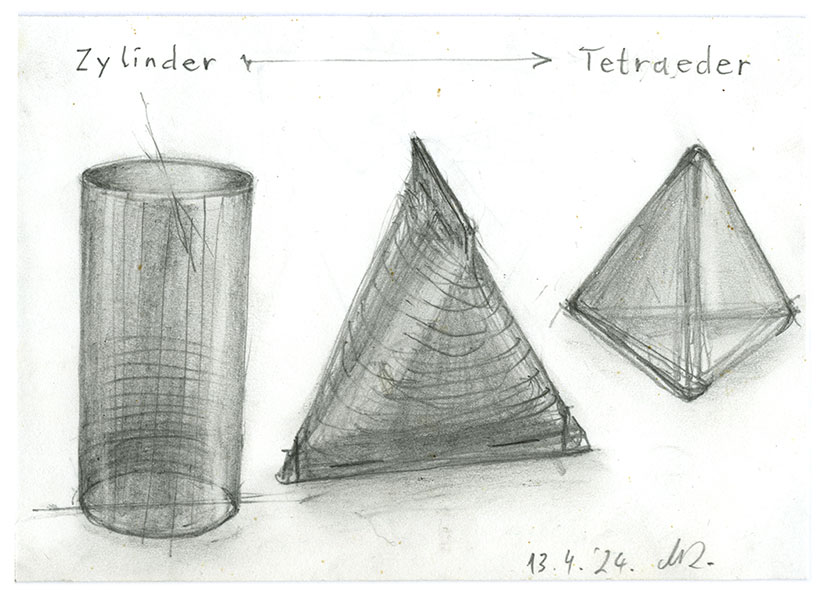 Zylinder Tetraeder
13.4.'24.